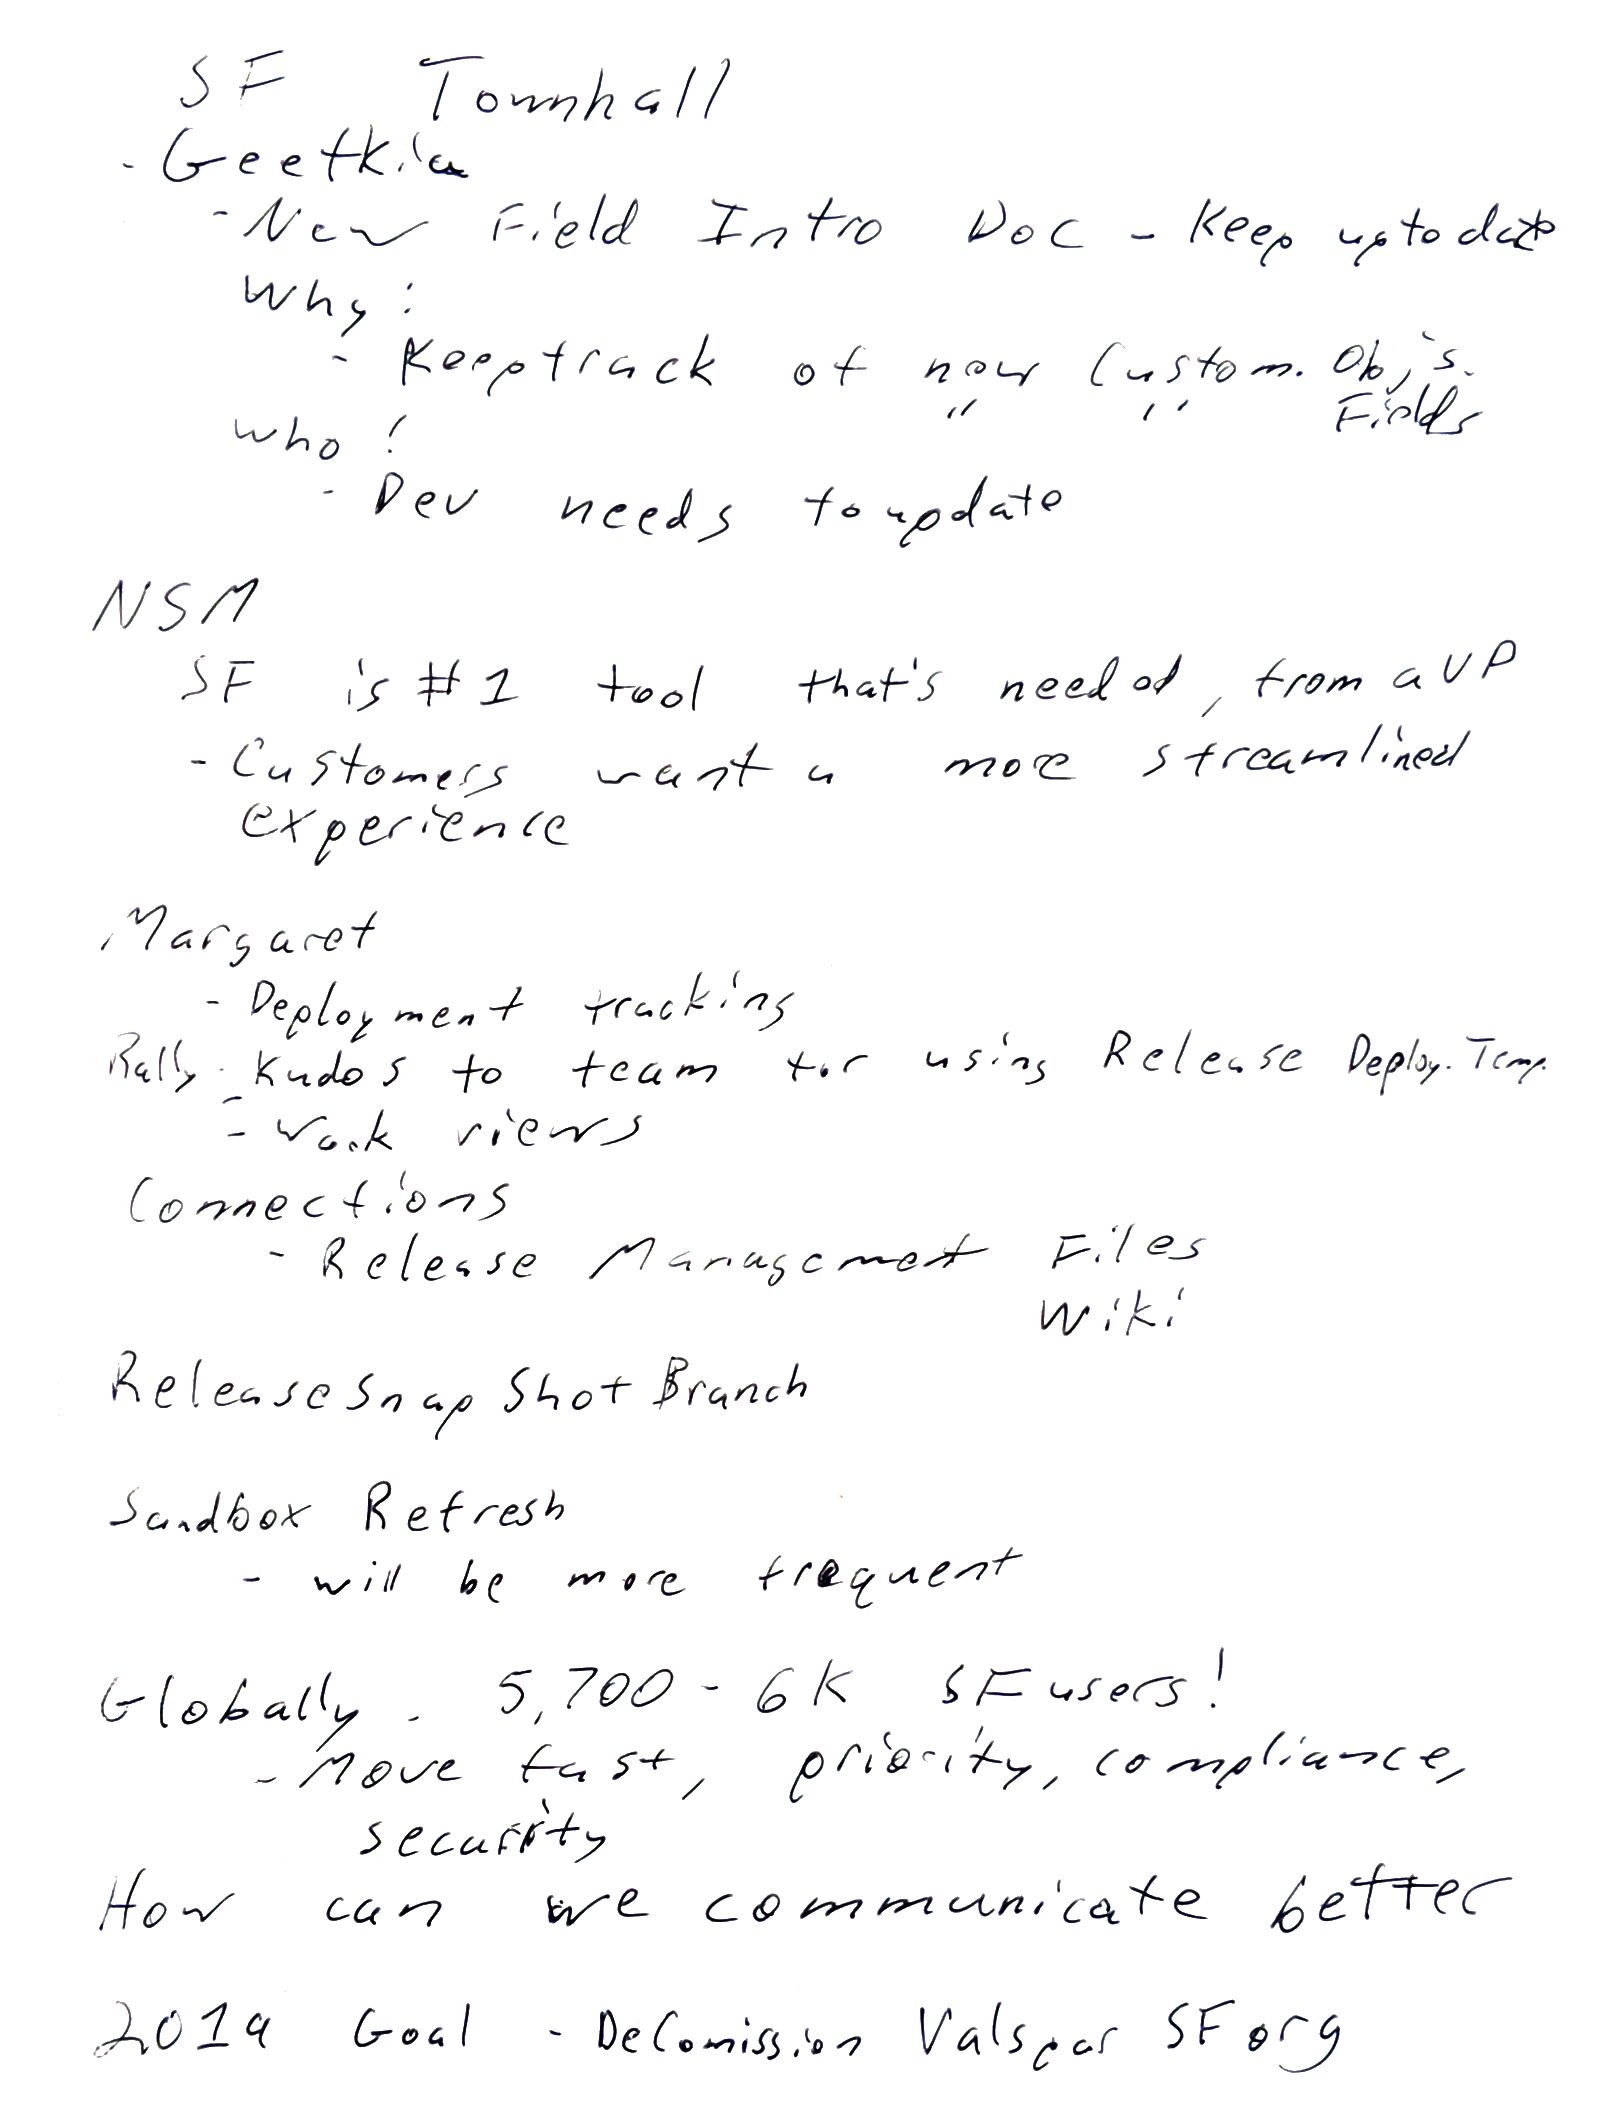 SF Townhall
- Geetkia
- New Field Intro Doc - Keep up to date
Why:
- Keep track of new Custom. Obj's.
" " Fields
Who!
- Dev needs to update
NSM
SF is #1 tool that's needed, from a VP
- Customers want a more streamlined
experience
Margaret
- Deployment tracking
Rally - Kudos to team for using Release Deploy. Temp.
- Work views
Connections
- Release Management Files
Wiki
Release Snap Shot Branch
Sandbox Refresh
- will be more frequent
Globally - 5,700 - 6K SF users!
- Move fast, priority, compliance,
security
How can we communicate better
2019 Goal - DeComission Valspar SF org